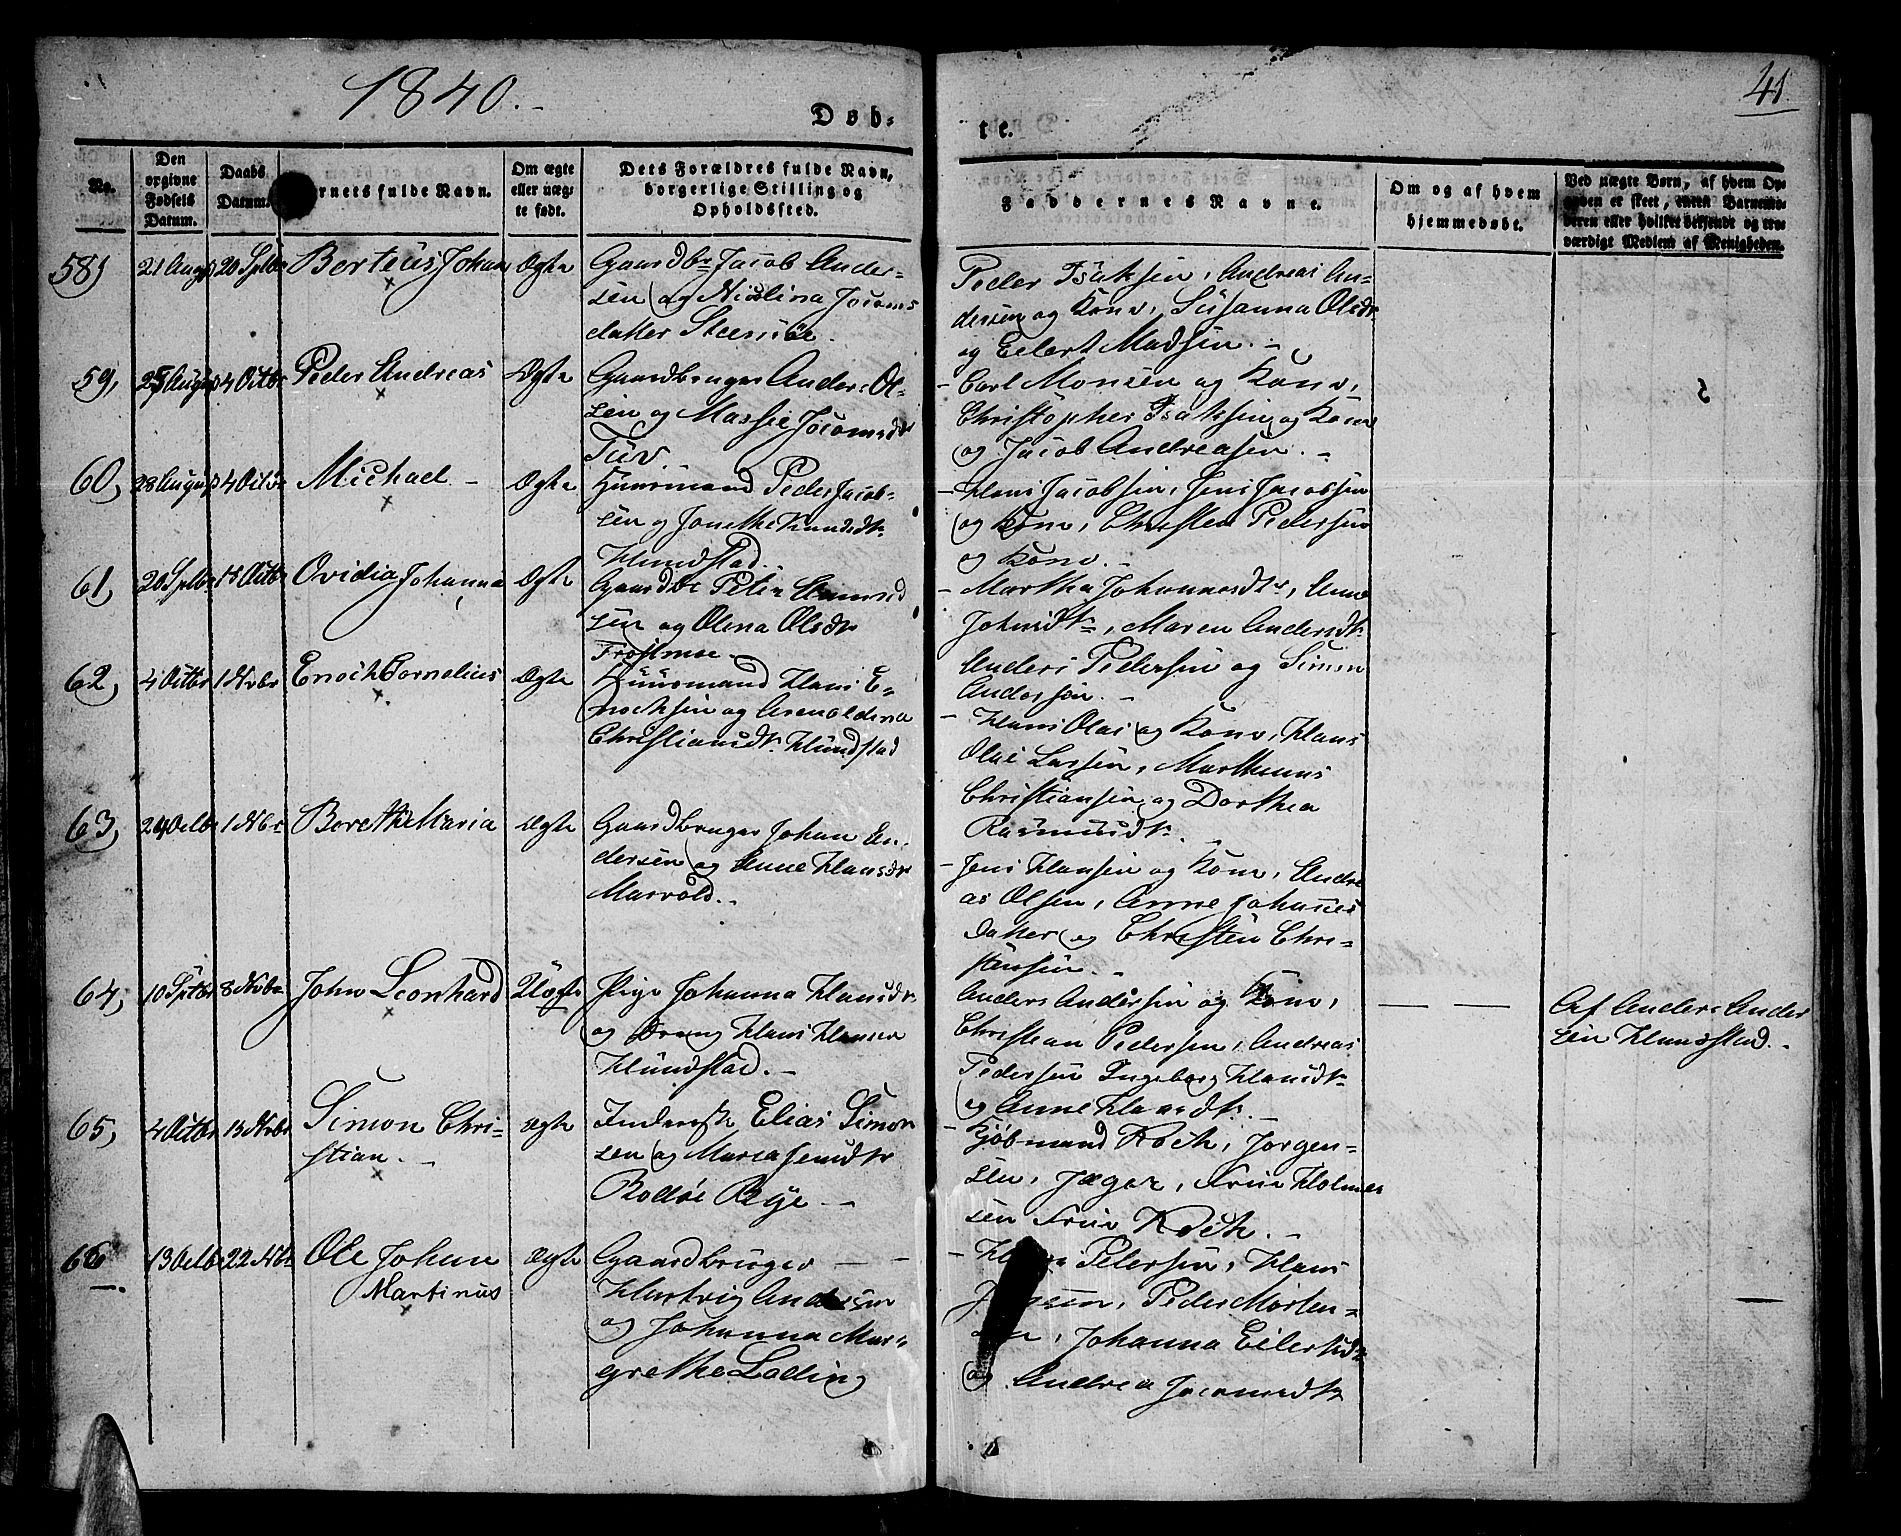 1840.
41.
Døb-
te.
No.
Den
opgivne
Fødsels
Datum.
Daabs
Datum.
rnets fulde Navn.
Om ægte
eller uæg-
te født.
Dets Forældres fulde Navn,
borgerlige Stilling og
Opholdssted.
Faddernes Navne.
Om og af hvem
hjemmedøbt.
Ved uægte Børn, af hvem Op-
værdigt Medlem af Menigheden.
58,
21 August
20 Sptbr
Berteus Johan
Ægte
Gaardbr Jacob Ander-
sen og Nicolina Jocoms
datter Steensøe.
Peder Isaksen, Andreas An-
dersen og Kone, Susanna Olsdr
og Eilert Madsen. -
59,
25 August
4 Octbr
Peder Andreas
Ægte
Gaardbruger Anders Ol-
sen og Massie Jocomsdr
Tuv.
- Carl Monsen og Kone,
Christopher Isaksen og Kone
og Jacob Andreasen. -
60,
28 August
4 Octbr
Michael -
Ægte
Huusmand Peder Jacob-
sen og Jonethe Knudsdr
Hundstad.
- Hans Jacobsen, Jens Jacobsen
og Kone, Christen Pedersen
og Kone. -
61,
20 Sptbr
18 Octbr
Ovidia Johanna
Ægte
Gaardbr Peter
sen og Olena Olsdr
- Martha Johannesdr, Anne
Johnsdr, Maren Andersdr
Anders Pedersen og Simon
Anderssen. -
62,
4 Octbr
1 Nvbr
Enoch Cornelius
Ægte
Huusmand Hans E-
nochsen og Arenoldina
Christiansdr Hundstad
- Hans Olai og Kone, Hans
Olai Larsen, Marthinus
Christiansen og Dorthea
Rasmusdr. -
63,
24 Octbr
1 Nvbr
Berethe Maria
Ægte
Gaardbruger Johan An-
dersen og Anne Hansdr
Marvold. -
- Jens Hansen og Kone, Andre
as Olsen, Anne Johannes
datter og Christen Chri-
stensen. -
64,
10 Sptbr
8 Nvbr
John Leonhard
Uægte
Pige Johanna Hansdr
og Dreng Hans Hansen
Hundstad. -
Anders Andersen og Kone,
Christian Pedersen, Andreas
Pedersen Ingeborg Hansdr
og Anne Hansdr. -
Af Anders Ander
sen Hundstad. -
65,
4 Octbr
15 Nvbr
Simon Chri-
stian. -
ægte
Inderst Elias Simon
sen og Maria Jensdr
Bodøe Bye -
- Kjøbmand Koch, Jørgen-
sen, Jæger, Frue Holmer
sen Frue Koch. -
66
13 Octb
22 Nbr
Ole Johan
Martinus
Ægte
Gaardbruger - -
Hartvig Andersen
og Johanna Mar-
grethe Løding
- Petersen, Hans
Jensen, Peder Morten-
sen, Johanna Eilertsdr
og Andrea Jocomsdr